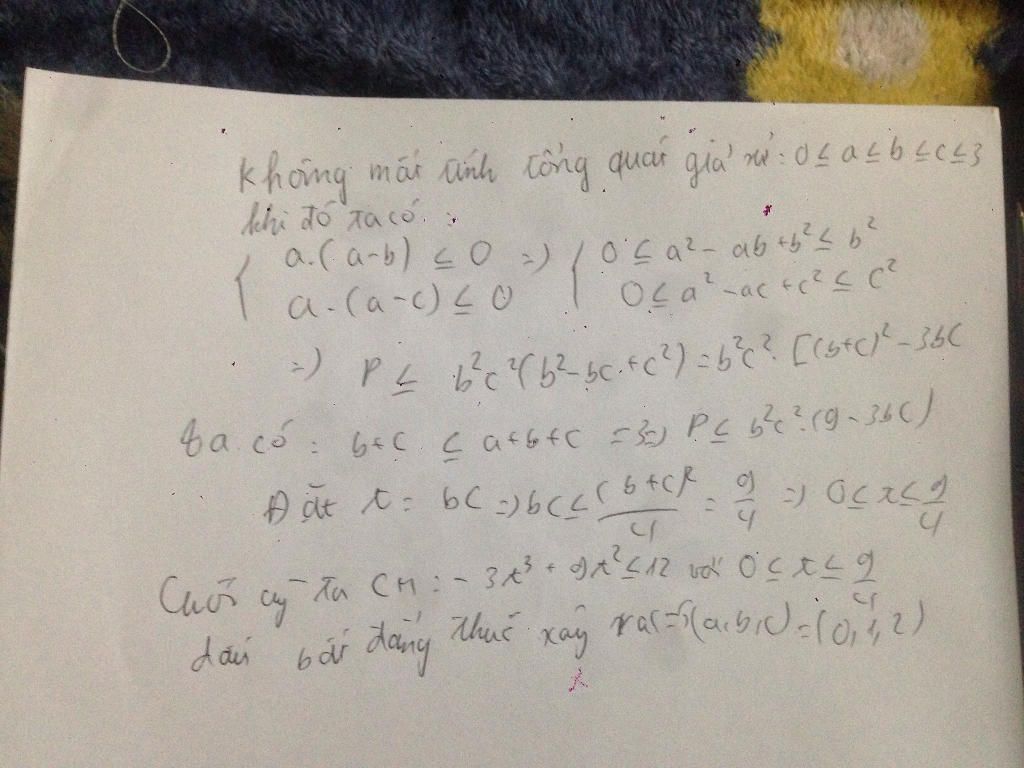 Không mất tính tổng quát giả sử: 0 ≤ a ≤ b ≤ c ≤ 3
khi đó ta có:
{ a.(a-b) ≤ 0 => { 0 ≤ a² - ab + b² ≤ b²
{ a.(a-c) ≤ 0 { 0 ≤ a² - ac + c² ≤ c²
=> P ≤ b²c²(b² - bc + c²) = b²c².[(b+c)² - 3bc
Ta có: b+c ≤ a+b+c = 3 => P ≤ b²c².(9 - 3bc)
Đặt x = bc => bc ≤ (b+c)²/4 = 9/4 => 0 ≤ x ≤ 9/4
Cuối ta CM: -3x³ + 9x² ≤ 12 với 0 ≤ x ≤ 9/4
dấu bất đẳng thức xảy ra <=> (a,b,c) = (0,1,2)